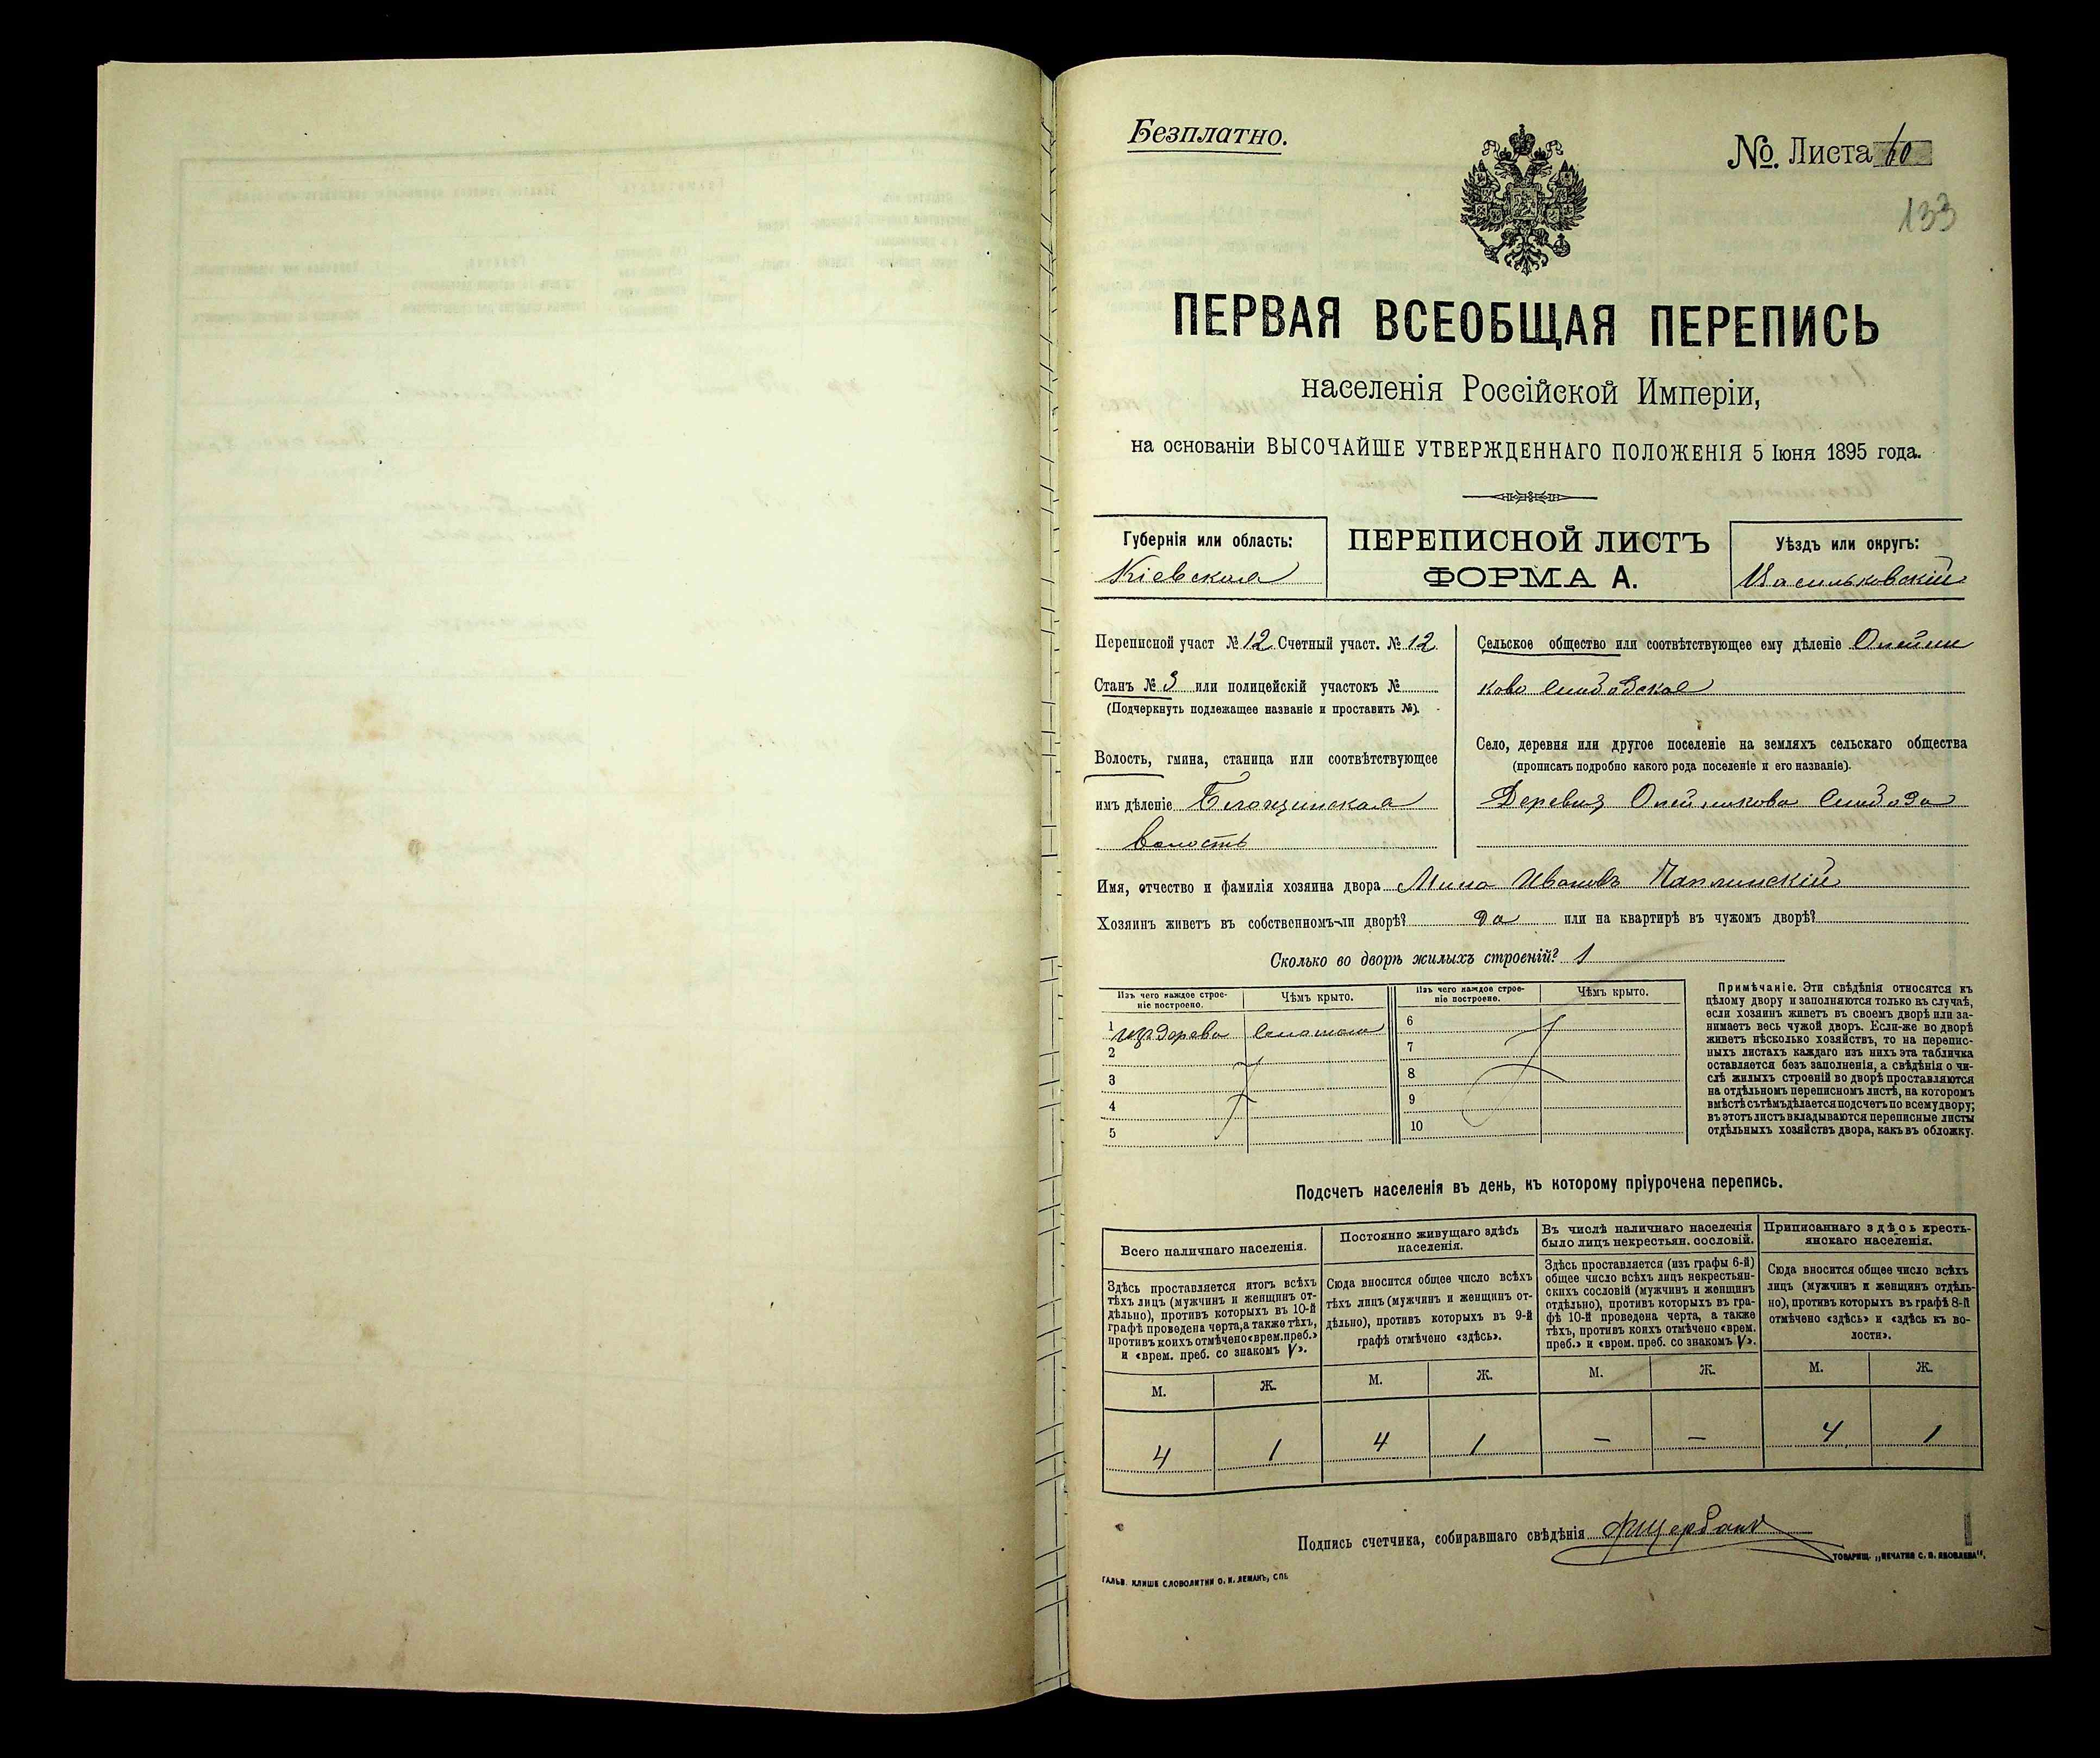 Безплатно.
№. Листа 60
133
ПЕРВАЯ ВСЕОБЩАЯ ПЕРЕПИСЬ
населенія Россійской Имперіи,
на основаніи ВЫСОЧАЙШЕ УТВЕРЖДЕННАГО ПОЛОЖЕНІЯ 5 Іюня 1895 года.
Губернія или область:
Кіевская
ПЕРЕПИСНОЙ ЛИСТЪ
ФОРМА А.
Уѣздъ или округъ:
Васильковскій
Переписной участ № 12 Счетный участ. № 12
Станъ № 3 или полицейскій участокъ №
(Подчеркнуть подлежащее названіе и проставить №).
Волость, гмина, станица или соотвѣтствующее
имъ дѣленіе
волость
Сельское общество или соотвѣтствующее ему дѣленіе Олейни
ково Слободское
Село, деревня или другое поселеніе на земляхъ сельскаго общества
(прописать подробно какого рода поселеніе и его названіе).
Деревня Олейникова Слобода
Имя, отчество и фамилія хозяина двора Мина Ивановъ Чаплинскій
Хозяинъ живетъ въ собственномъ-ли дворѣ? да или на квартирѣ въ чужомъ дворѣ?
Сколько во дворѣ жилыхъ строеній? 1
Изъ чего каждое строе-
ніе построено.
Чѣмъ крыто.
1 изъ дерева Соломою
2
3
4
5
Изъ чего каждое строе-
ніе построено.
Чѣмъ крыто.
6
7
8
9
10
Примѣчаніе. Эти свѣдѣнія относятся къ
цѣлому двору и заполняются только въ случаѣ,
если хозяинъ живетъ въ своемъ дворѣ или за-
нимаетъ весь чужой дворъ. Если-же во дворѣ
живетъ нѣсколько хозяйствъ, то на перепис-
ныхъ листахъ каждаго изъ нихъ эта табличка
оставляется безъ заполненія, а свѣдѣнія о чи-
слѣ жилыхъ строеній во дворѣ проставляются
на отдѣльномъ переписномъ листѣ, на которомъ
вмѣстѣ съ тѣмъ дѣлается подсчетъ по всему двору;
въ этотъ листъ вкладываются переписные листы
отдѣльныхъ хозяйствъ двора, какъ въ обложку.
Подсчетъ населенія въ день, къ которому пріурочена перепись.
Всего наличнаго населенія.
Здѣсь проставляется итогъ всѣхъ
тѣхъ лицъ (мужчинъ и женщинъ от-
дѣльно), противъ которыхъ въ 10-й
графѣ проведена черта, а также тѣхъ,
противъ коихъ отмѣчено «врем. преб.»
и «врем. преб. со знакомъ V».
М. Ж.
4 1
Постоянно живущаго здѣсь
населенія.
Сюда вносится общее число всѣхъ
тѣхъ лицъ (мужчинъ и женщинъ от-
дѣльно), противъ которыхъ въ 9-й
графѣ отмѣчено «здѣсь».
М. Ж.
4 1
Въ числѣ наличнаго населенія
было лицъ некрестьян. сословій.
Здѣсь проставляется (изъ графы 6-й)
общее число всѣхъ лицъ некрестьян-
скихъ сословій (мужчинъ и женщинъ
отдѣльно), противъ которыхъ въ гра-
фѣ 10-й проведена черта, а также
тѣхъ, противъ коихъ отмѣчено «врем.
преб.» и «врем. преб. со знакомъ V».
М. Ж.
— —
Приписаннаго здѣсь кресть-
янскаго населенія.
Сюда вносится общее число всѣхъ
лицъ (мужчинъ и женщинъ отдѣль-
но), противъ которыхъ въ графѣ 8-й
отмѣчено «здѣсь» и «здѣсь къ во-
лости».
М. Ж.
4 1
Подпись счетчика, собиравшаго свѣдѣнія
ГАЛЬВ. КЛИШЕ СЛОВОЛИТНИ О. И. ЛЕМАНЪ, СПБ
ТОВАРИЩ. „ПЕЧАТНЯ С. П. ЯКОВЛЕВА".